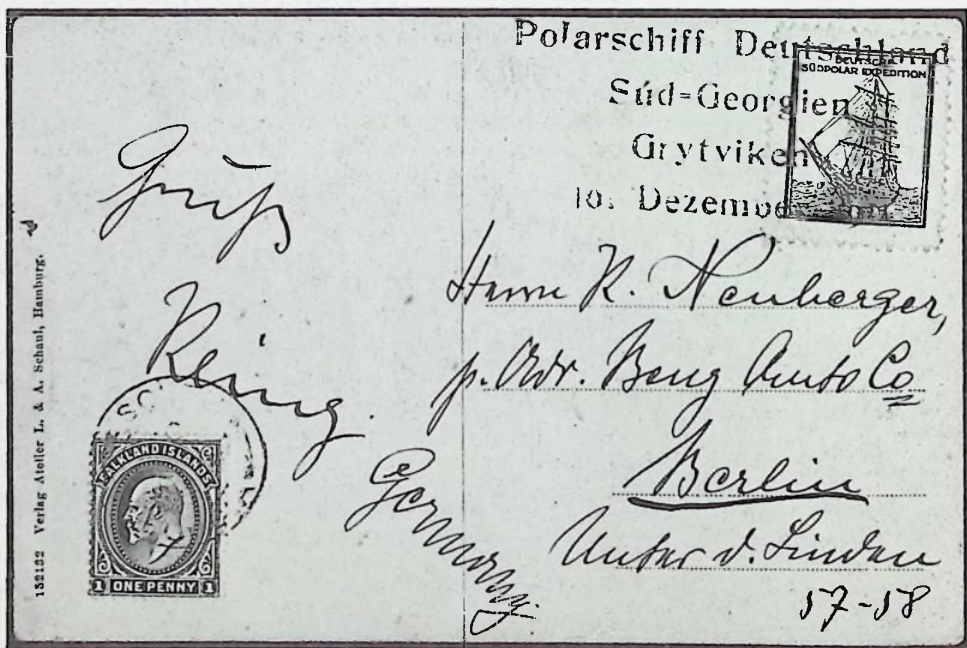 Polarschiff Deutschland
Süd=Georgien
Grytviken
10. Dezember
DEUTSCHE
SÜDPOLAR EXPEDITION
Gruß
Kling.
Herrn K. Neuberger,
p. Adr. Benz Auto Co
Berlin
Unter d. Linden
57-58
Germany.
FALKLAND ISLANDS
1 ONE PENNY 1
152122 Verlag Atelier L. & A. Schaul, Hamburg.